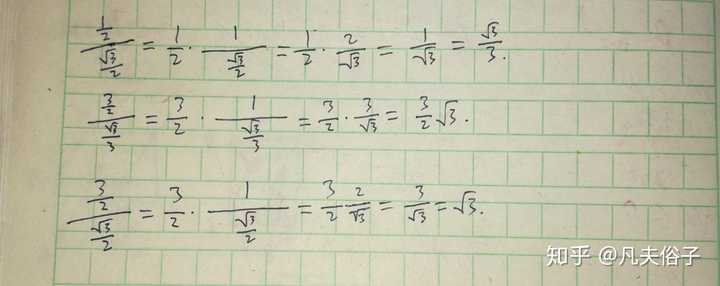 \frac{\frac{1}{2}}{\frac{\sqrt{3}}{2}} = \frac{1}{2} \cdot \frac{1}{\frac{\sqrt{3}}{2}} = \frac{1}{2} \cdot \frac{2}{\sqrt{3}} = \frac{1}{\sqrt{3}} = \frac{\sqrt{3}}{3}.
\frac{\frac{3}{2}}{\frac{\sqrt{3}}{3}} = \frac{3}{2} \cdot \frac{1}{\frac{\sqrt{3}}{3}} = \frac{3}{2} \cdot \frac{3}{\sqrt{3}} = \frac{3}{2}\sqrt{3}.
\frac{\frac{3}{2}}{\frac{\sqrt{3}}{2}} = \frac{3}{2} \cdot \frac{1}{\frac{\sqrt{3}}{2}} = \frac{3}{2} \frac{2}{\sqrt{3}} = \frac{3}{\sqrt{3}} = \sqrt{3}.
知乎 @凡夫俗子